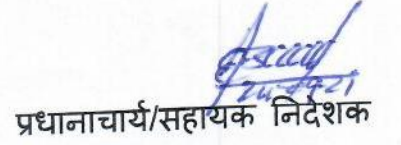 प्रधानाचार्य/सहायक निदेशक